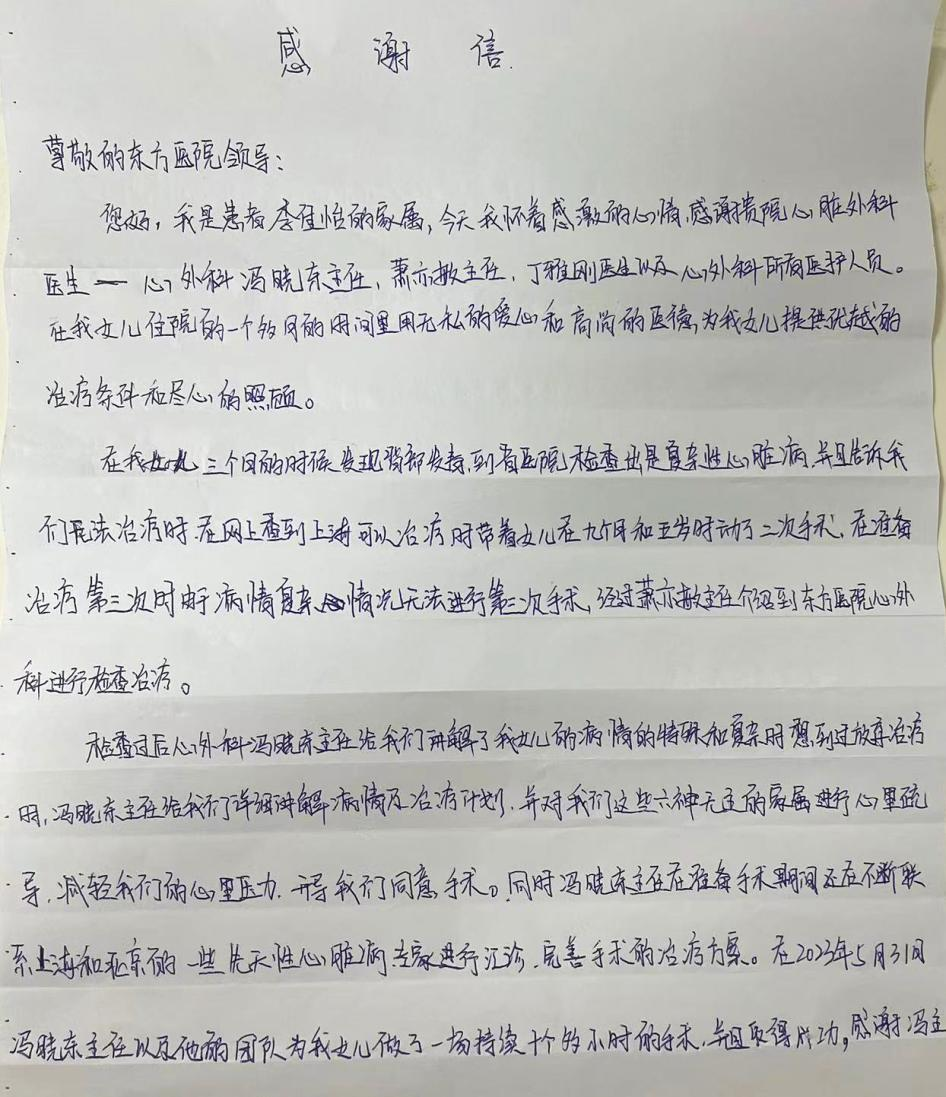 感谢信.
尊敬的东方医院领导:
您好,我是患者李佳怡的家属,今天我怀着感激的心情,感谢贵院心脏外科
医生一心外科冯晓东主任,萧亦敏主任,丁雅刚医生以及心外科所有医护人员。
在我女儿住院的一个多月的时间里用无私的爱心和高尚的医德,为我女儿提供优越的
治疗条件和尽心的照顾。
在我女儿三个月的时候发现背部发青,到省医院检查出是复杂性心脏病,并且告诉我
们无法治疗时.在网上查到上海可以治疗时带着女儿在九个月和五岁时动了二次手术,在准备
治疗第三次时由于病情复杂情况无法进行第三次手术,经过萧亦敏主任介绍到东方医院心外
科进行检查治疗。
检查过后心外科冯晓东主任给我们讲解了我女儿的病情的特殊和复杂时想到过放弃治疗
时,冯晓东主任给我们详细讲解病情及治疗计划,并对我们这些六神无主的家属进行心里疏
导,减轻我们的心里压力,开导我们同意手术。同时冯晓东主任在准备手术期间还在不断联
系上海和北京的一些先天性心脏病专家进行汇诊,完善手术的治疗方案。在2023年5月31日
冯晓东主任以及他的团队为我女儿做了一场持续十个多小时的手术,并且取得成功,感谢冯主